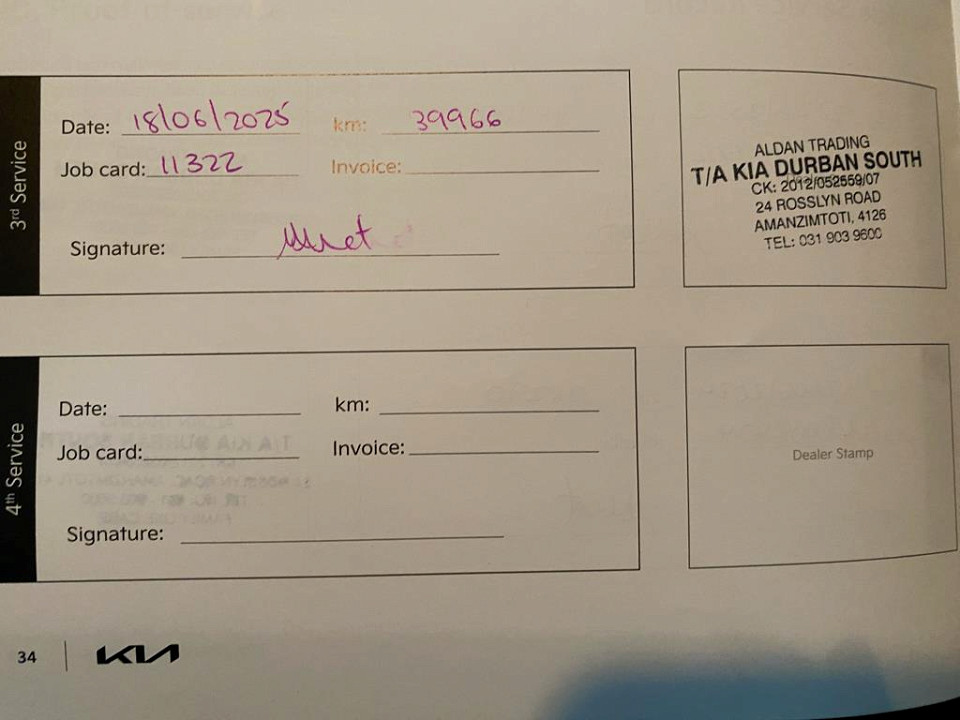 3rd Service
Date: 18/06/2025 km: 39966
Job card: 11322 Invoice:
Signature:
ALDAN TRADING
T/A KIA DURBAN SOUTH
CK: 2012/052559/07
24 ROSSLYN ROAD
AMANZIMTOTI, 4126
TEL: 031 903 9600
4th Service
Date: km:
Job card: Invoice:
Signature:
Dealer Stamp
34 KIA